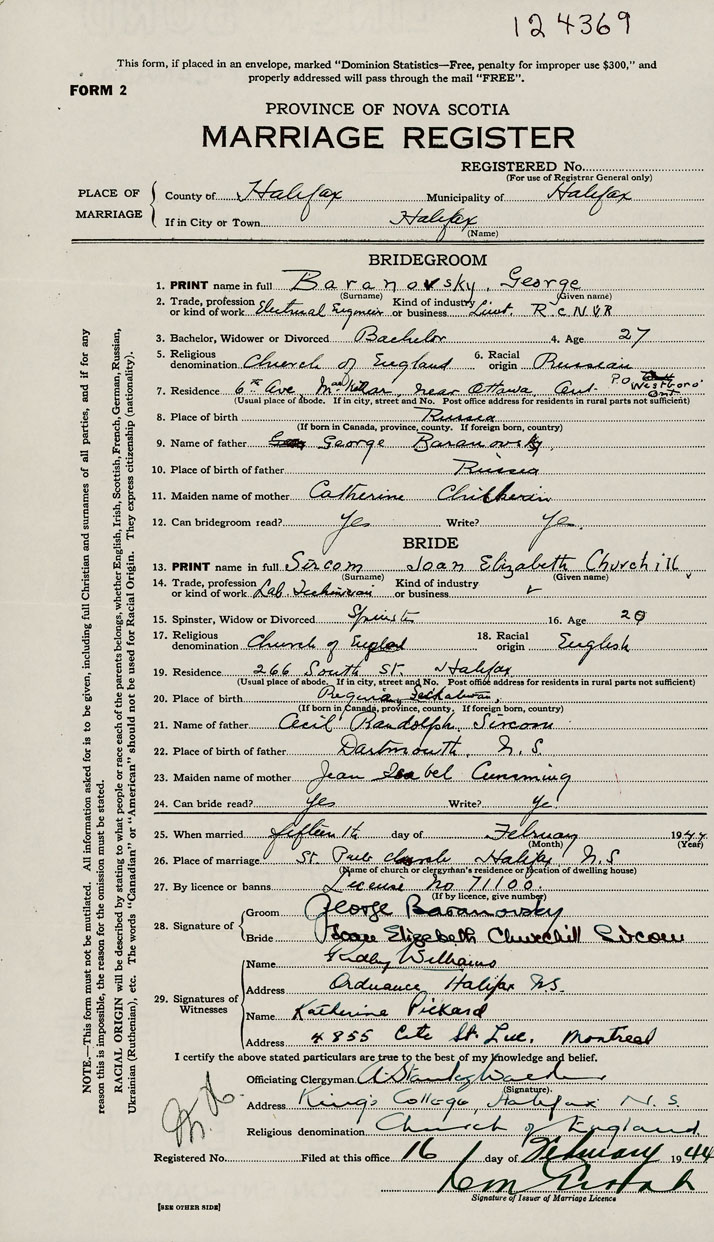 124369
This form, if placed in an envelope, marked "Dominion Statistics—Free, penalty for improper use $300," and
properly addressed will pass through the mail "FREE".
FORM 2
PROVINCE OF NOVA SCOTIA
MARRIAGE REGISTER
REGISTERED No.
(For use of Registrar General only)
PLACE OF MARRIAGE
County of Halifax Municipality of Halifax
If in City or Town Halifax
(Name)
BRIDEGROOM
1. PRINT name in full Baranovsky, George
(Surname) (Given name)
2. Trade, profession or kind of work Electrical Engineer Kind of industry or business Lieut. R C N V R
3. Bachelor, Widower or Divorced Bachelor 4. Age 27
5. Religious denomination Church of England 6. Racial origin Russian
7. Residence 6th Ave, near Ottawa, Ont. P.O. Westboro Ont
(Usual place of abode. If in city, street and No. Post office address for residents in rural parts not sufficient)
8. Place of birth Russia
(If born in Canada, province, county. If foreign born, country)
9. Name of father George Baranovsky
10. Place of birth of father Russia
11. Maiden name of mother Catherine
12. Can bridegroom read? Yes Write? Yes.
BRIDE
13. PRINT name in full Sircom Joan Elizabeth Churchill
(Surname) (Given name)
14. Trade, profession or kind of work Lab. Technician Kind of industry or business
15. Spinster, Widow or Divorced Spinster 16. Age 20
17. Religious denomination Church of England 18. Racial origin English
19. Residence 266 South St. Halifax
(Usual place of abode. If in city, street and No. Post office address for residents in rural parts not sufficient)
20. Place of birth Regina,
(If born in Canada, province, county. If foreign born, country)
21. Name of father Cecil Randolph Sircom
22. Place of birth of father Dartmouth, N.S.
23. Maiden name of mother Jean Isabel Cumming
24. Can bride read? Yes Write? Yes
25. When married fifteenth day of February 1944
(Month) (Year)
26. Place of marriage St. Church Halifax N.S
(Name of church or clergyman's residence or location of dwelling house)
27. By licence or banns License No 71100.
(If by licence, give number)
28. Signature of
Groom George Baranovsky
Bride Joan Elizabeth Churchill Sircom
29. Signatures of Witnesses
Name Williams
Address Ordnance Halifax N.S.
Name Katherine Pickard
Address 4855 Cote St. Luc. Montreal
I certify the above stated particulars are true to the best of my knowledge and belief.
Officiating Clergyman A Stanley
(Signature).
Address King's College, Halifax N.S.
Religious denomination Church of England
Registered No. Filed at this office 16 day of February 1944
Signature of Issuer of Marriage Licence
[SEE OTHER SIDE]
NOTE.—This form must not be mutilated. All information asked for is to be given, including full Christian and surnames of all parties, and if for any
reason this is impossible, the reason for the omission must be stated.
RACIAL ORIGIN will be described by stating to what people or race each of the parents belongs, whether English, Irish, Scottish, French, German, Russian,
Ukrainian (Ruthenian), etc. The words "Canadian" or "American" should not be used for Racial Origin. They express citizenship (nationality).